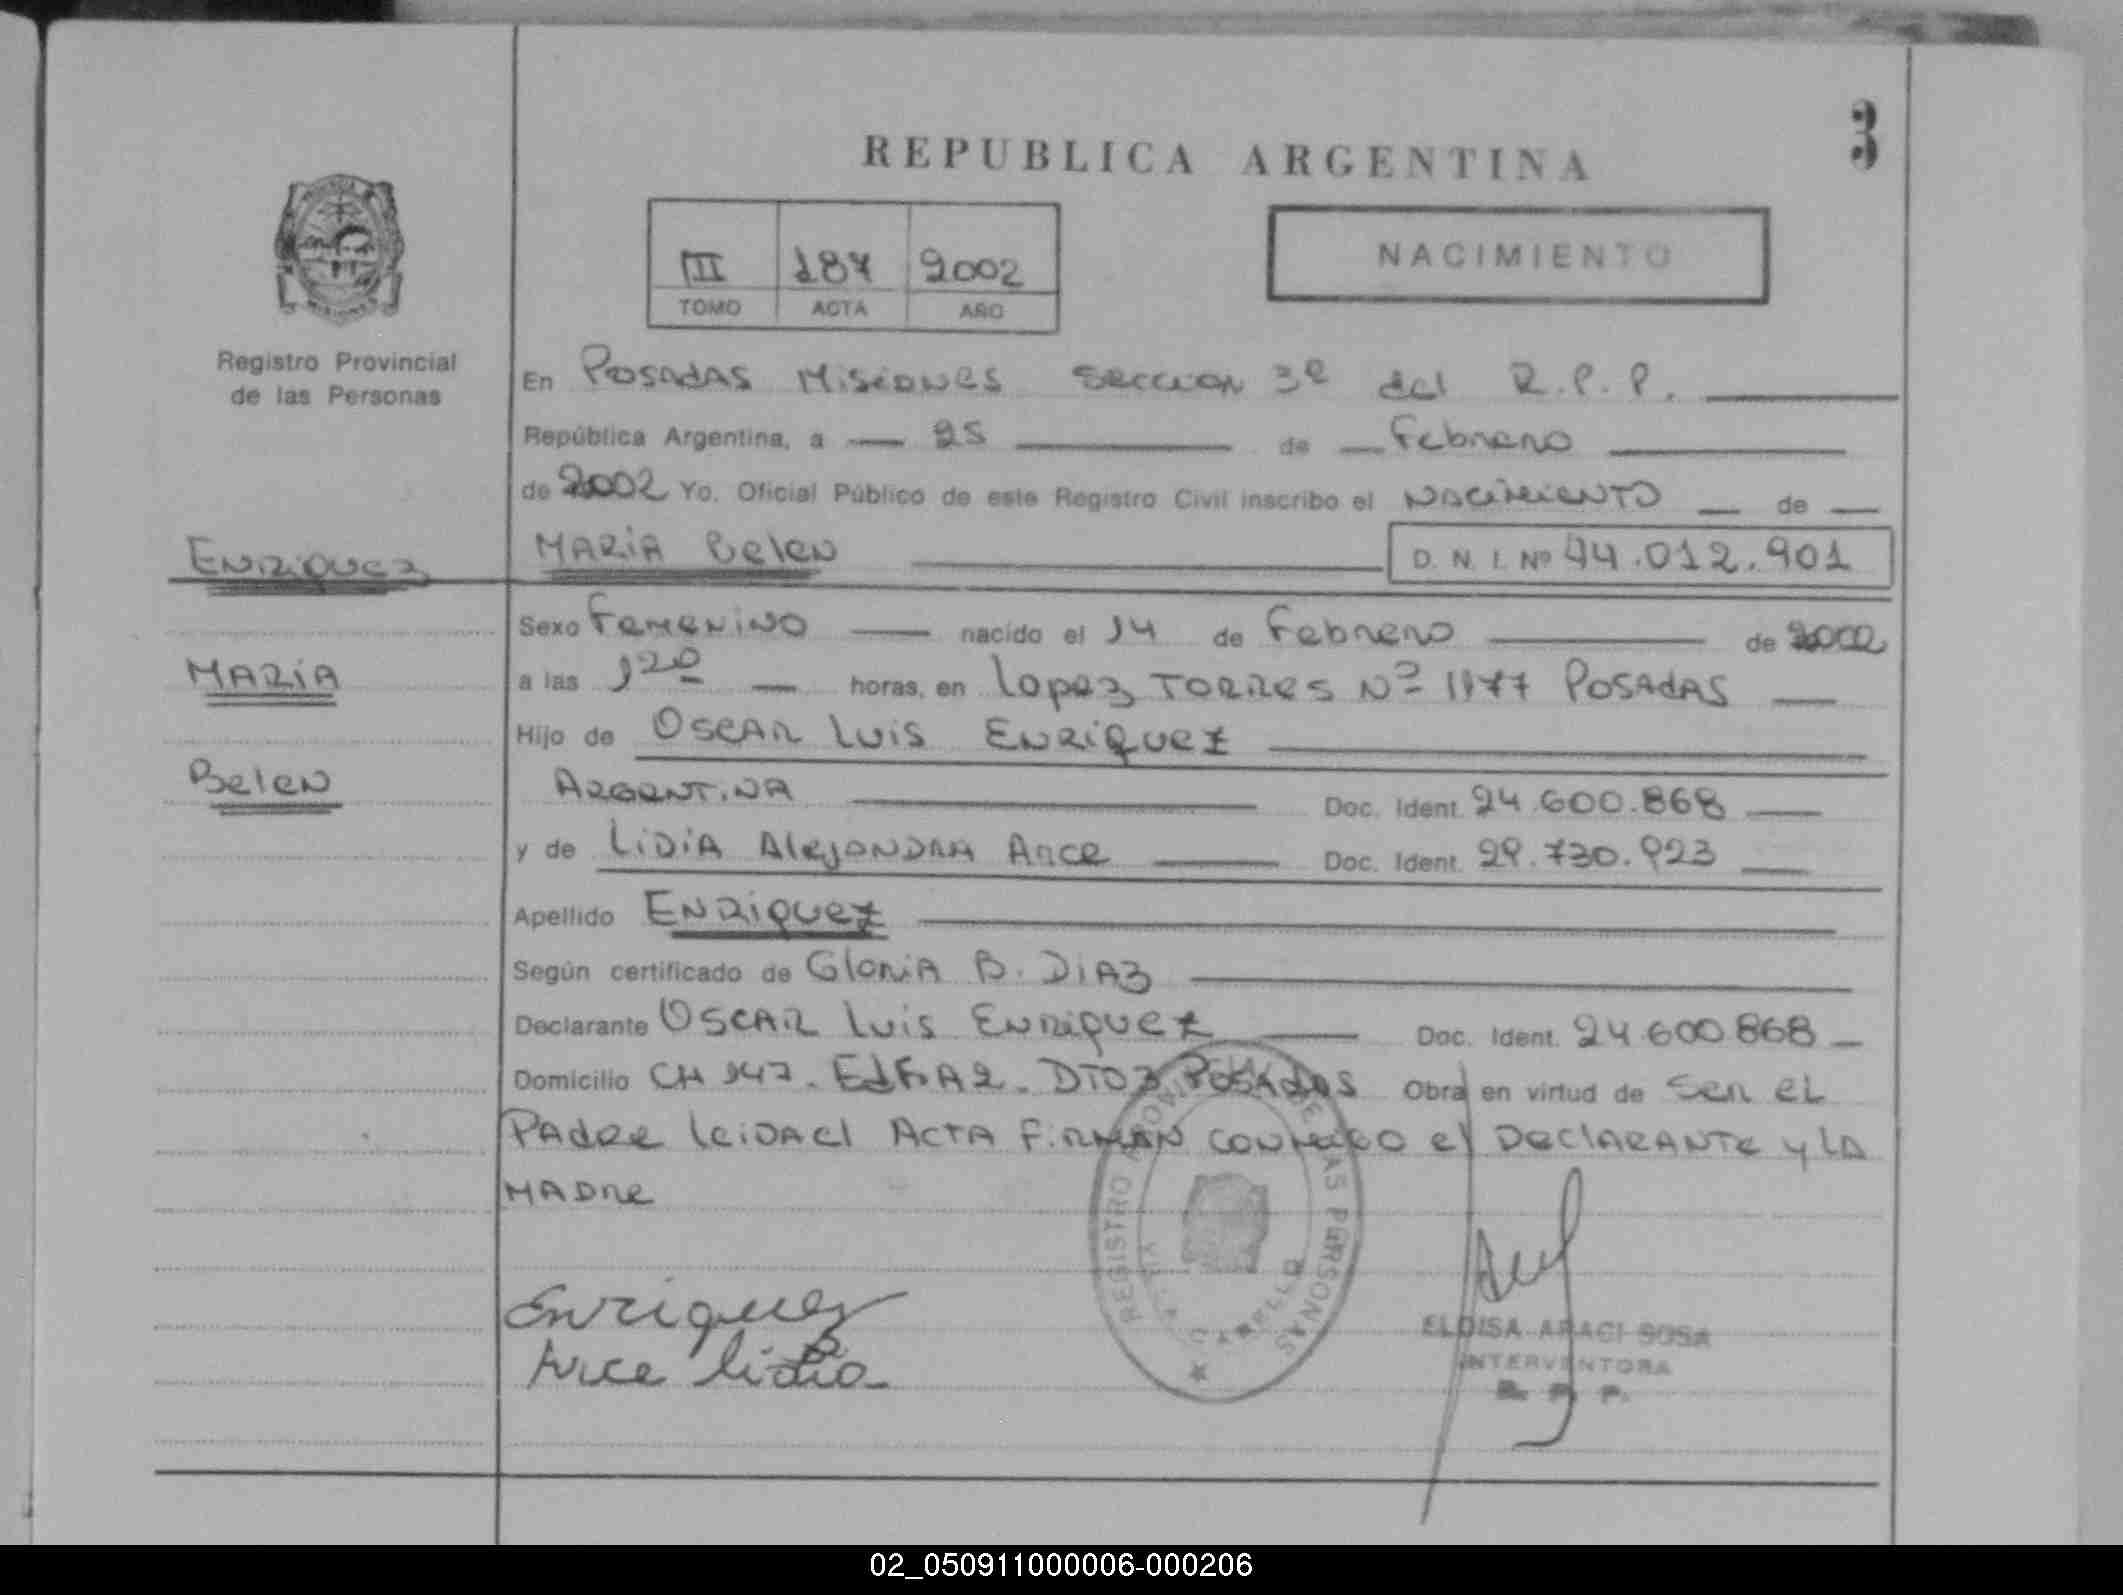 3
REPUBLICA ARGENTINA
NACIMIENTO
III 187 2002
TOMO ACTA AÑO
Registro Provincial
de las Personas
En POSADAS MISIONES SECCION 3º del R.P.P.
República Argentina, a 25 de Febrero
de 2002 Yo, Oficial Público de este Registro Civil inscribo el NACIMIENTO de
ENRIQUEZ
MARIA Belen D. N. I. Nº 44.012.901
Sexo Femenino nacido el 14 de Febrero de 2002
MARIA
a las horas, en Lopez TORRES Nº 1177 POSADAS
Hijo de OSCAR LUIS ENRIQUEZ
Belen
ARGENTINA Doc. Ident. 24.600.868
y de LIDIA AleJANDRA Arce Doc. Ident. 29.730.923
Apellido ENRIQUEZ
Según certificado de GLORIA B. DIAZ
Declarante OSCAR LUIS ENRIQUEZ Doc. Ident. 24.600.868
Domicilio CH 147. Edf. A2. DTO 3 POSADAS Obra en virtud de Ser EL
PADRE leida el ACTA FIRMAN CONMIGO el DeClARANTE y LA
MADRE
REGISTRO PROVINCIAL DE LAS PERSONAS
VILLA CABELLO
Enriquez
Arce lidia
ELOISA ARACI SOSA
INTERVENTORA
R. P. P.
02_050911000006-000206